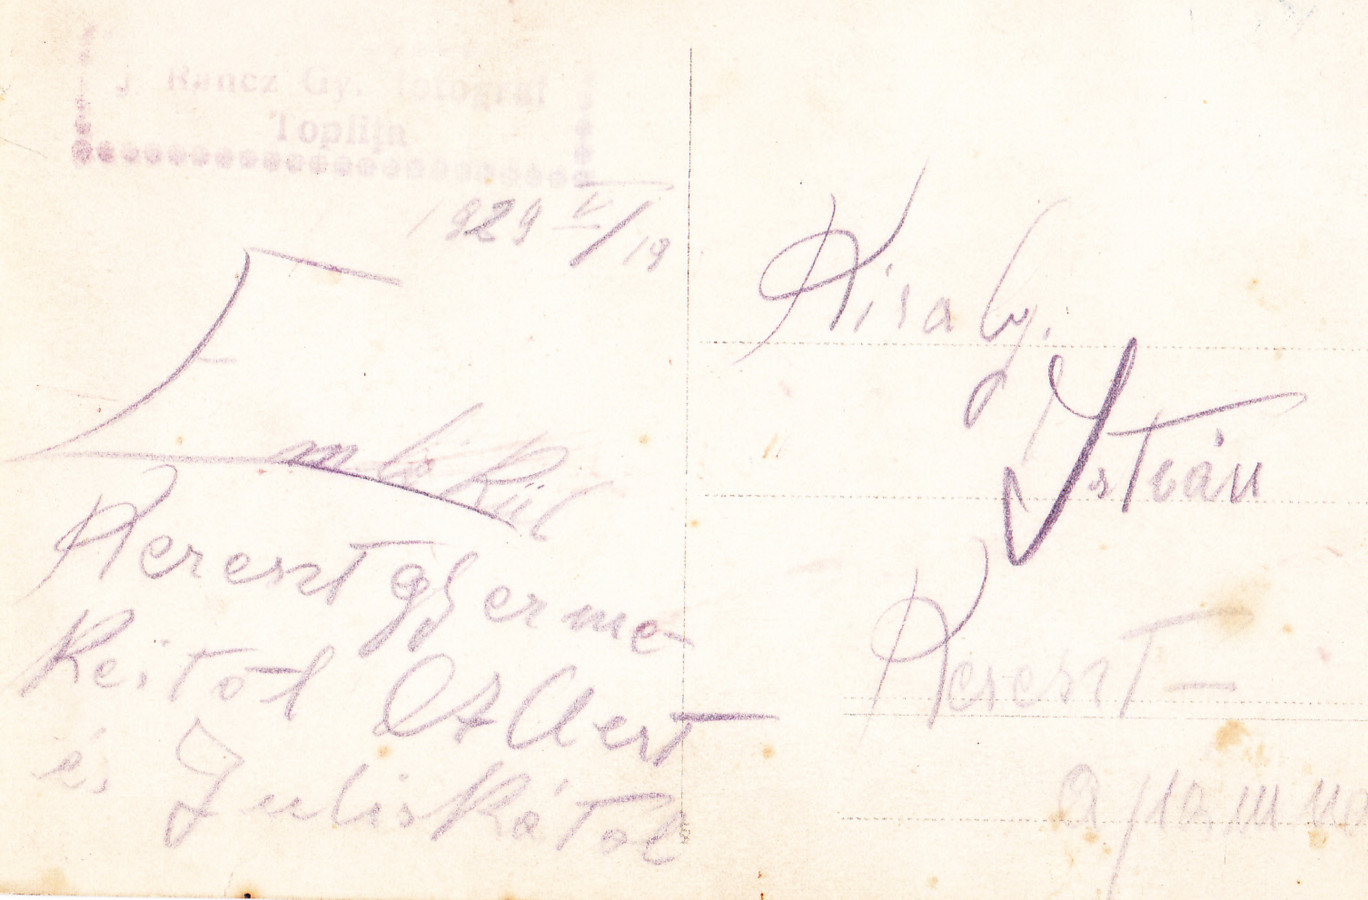 Rancz Gy. fotograf
Toplița
1929 V/19
Emlékül
Kereszt gyerme-
keitöl Albert
és Juliskátol
Kiraly.
István
Kereszt-
apának